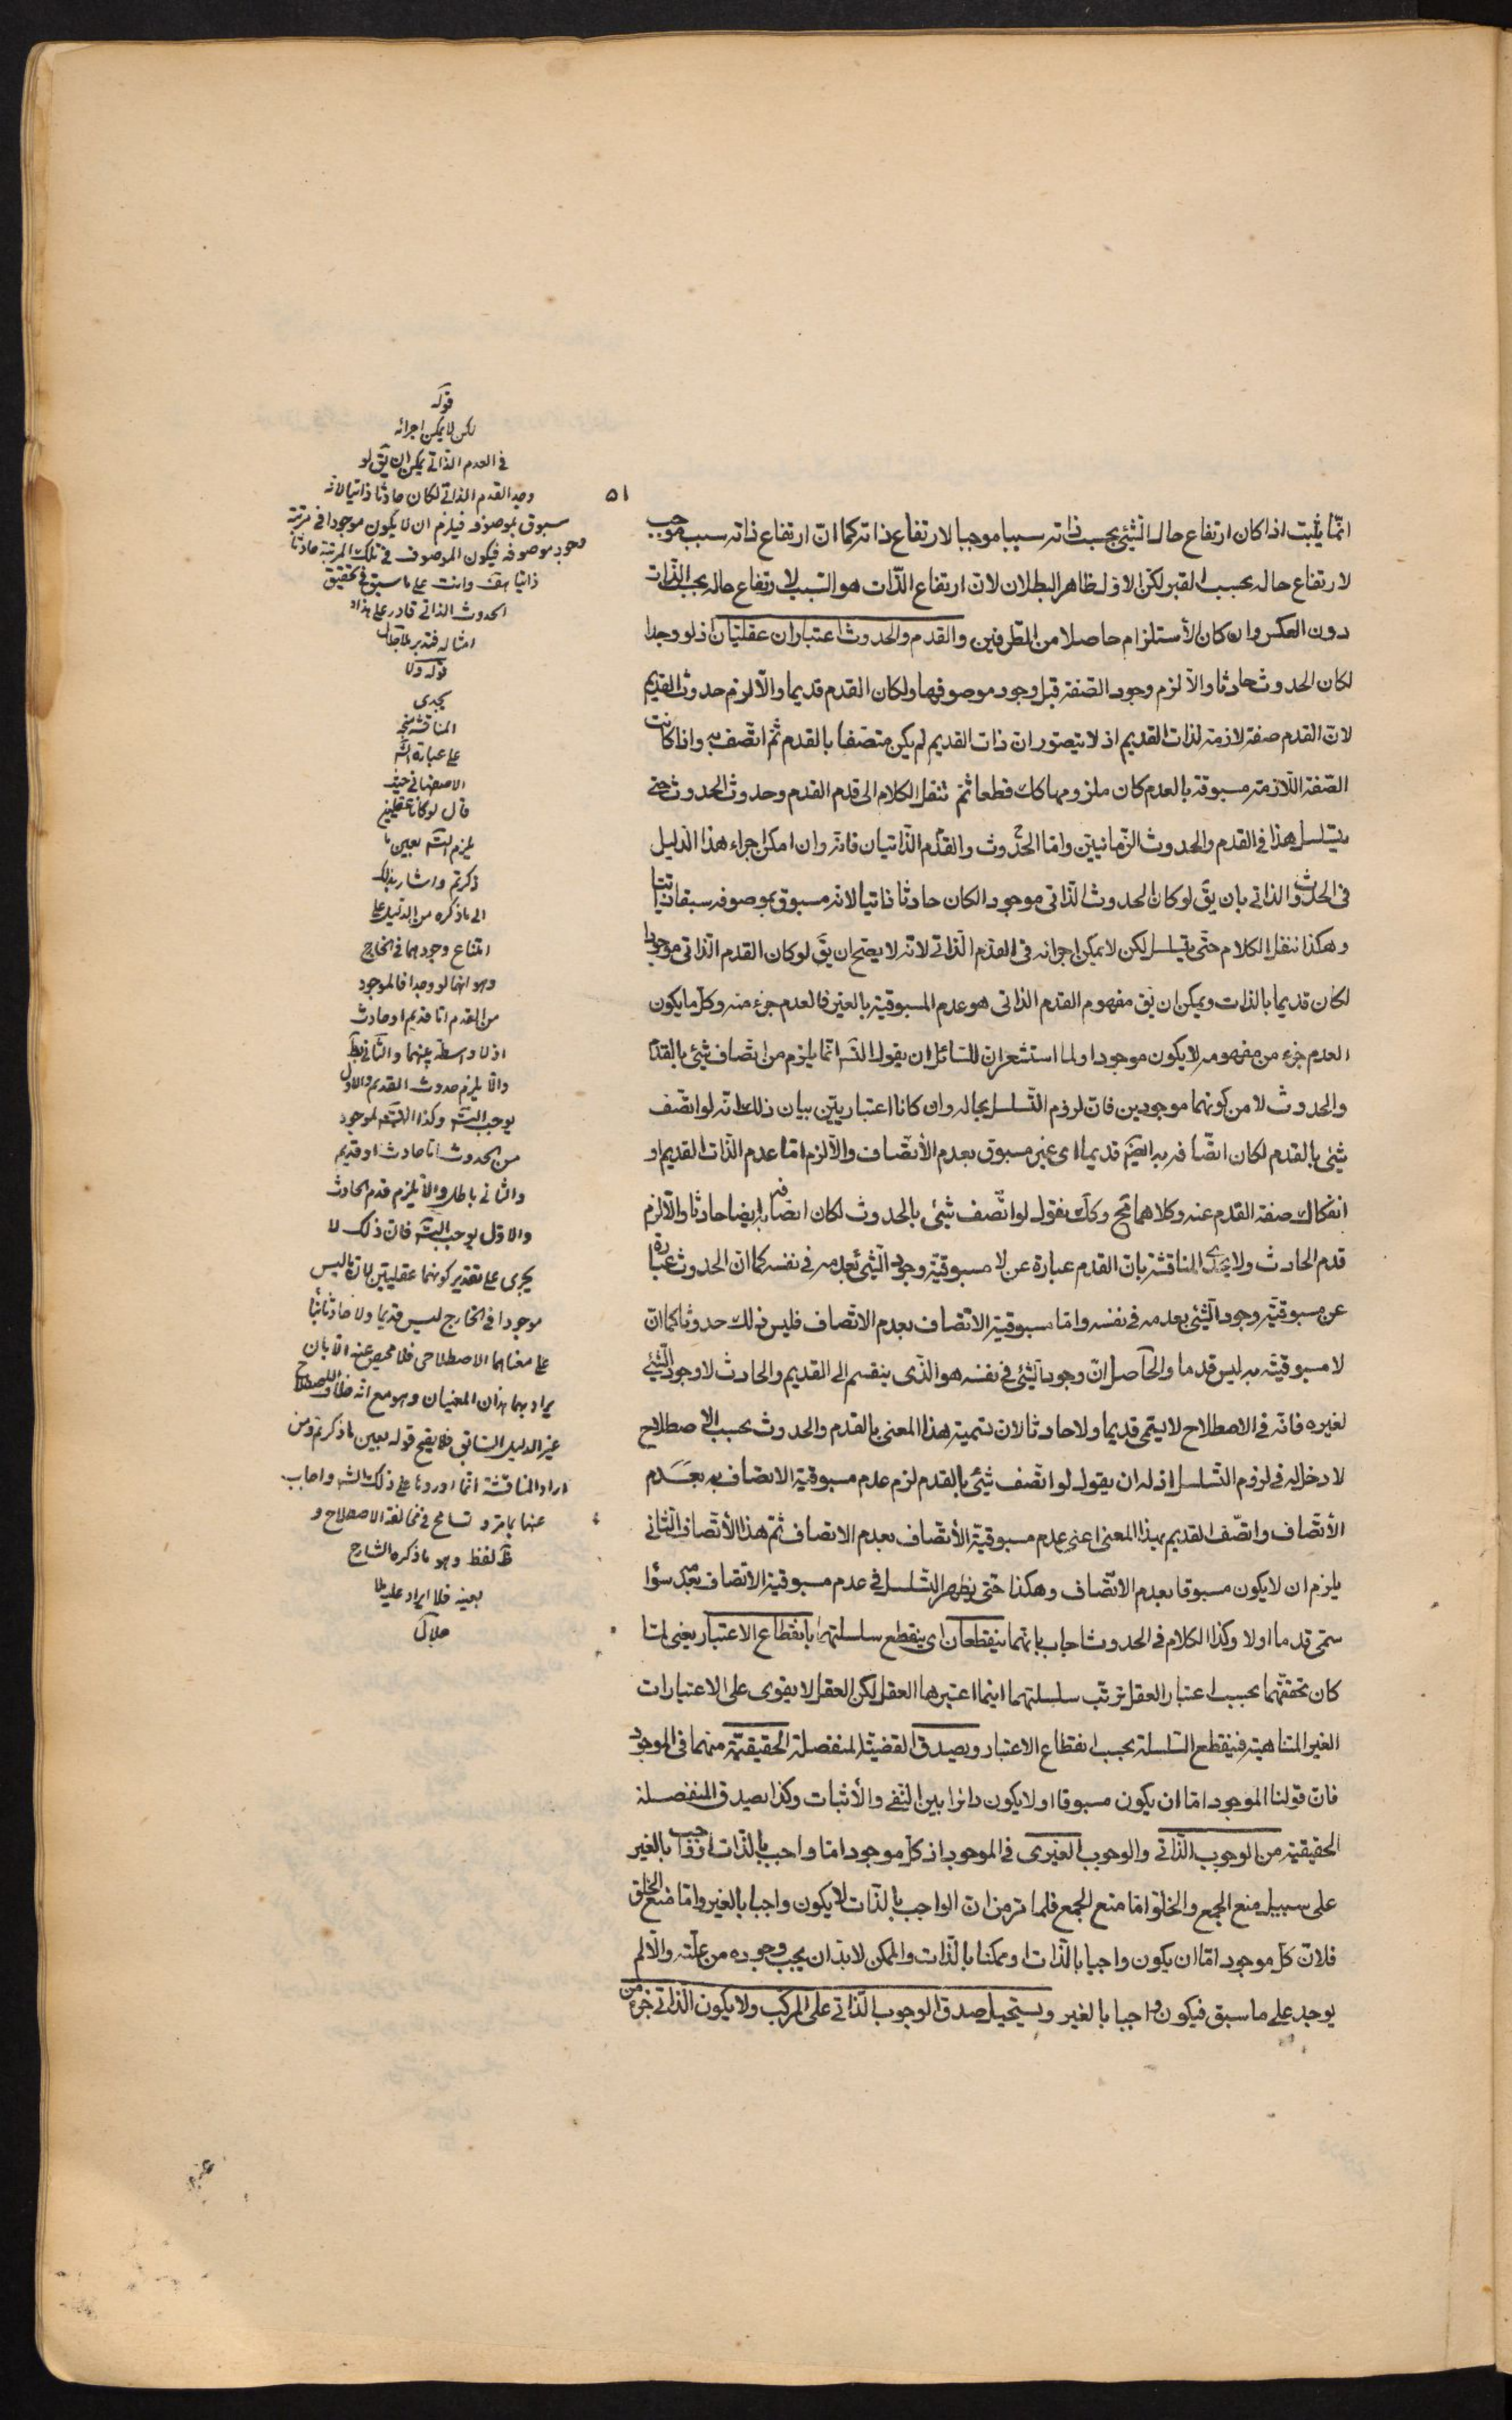 ٥١
انّما يثبت اذا كان ارتفاع حال الشئ بحسب ذاته سببا موجبا لارتفاع ذاته كما انّ ارتفاع ذاته سبب موجب
لارتفاع حاله بحسب القبر لكن الاوّل ظاهر البطلان لانّ ارتفاع الذّات هو السّبب لارتفاع حاله بحسب الذّات
دون العكس وان كان الأستلزام حاصلا من الطّرفين والقدم والحدوث اعتباران عقليّان اذ لو وجدا
لكان الحدوث حادثا والّا لزم وجود الصّفة قبل وجود موصوفها ولكان القدم قديما والّا لزم حدوث القديم
لانّ القدم صفة لازمة لذات القديم اذ لا يتصوّر ان ذات القديم لم يكن متصفا بالقدم ثمّ اتّصف به واذا كانت
الصّفة اللّازمة مسبوقة بالعدم كان ملزومها كك قطعا ثمّ ننقل الكلام الى قدم القدم وحدوث الحدوث حتى
يتسلسل هذا في القدم والحدوث الزّمانيّين وامّا الحدوث والقدم الذّاتيان فانّه وان امكن اجراء هذا الدّليل
في الحدوث الذاتي بان يقّ لو كان الحدوث الذّاتي موجودا لكان حادثا ذاتيا لانّه مسبوق بموصوفه سبقا ذاتيّا
وهكذا ننقل الكلام حتّى يتسلسل لكن لا يمكن اجرائه في القدم الذّاتي لانّه لا يصحّ ان يقّ لو كان القدم الذّاتي موجودا
لكان قديما بالذات ويمكن ان يقّ مفهوم القدم الذاتي هو عدم المسبوقيّة بالغير فالعدم جزء منه وكلّ ما يكون
العدم جزء من مفهومه لا يكون موجودا ولما استشعر ان للسّائل ان يقول التّسه انّما يلزم من اتّصاف شئ بالقدم
والحدوث لا من كونهما موجودين فانّ لزوم التّسلسل بحاله وان كانا اعتباريّين بيان ذلك انّه لو اتّصف
شئ بالقدم لكان اتّصافه به ايضا قديما اى غير مسبوق بعدم الأتّصاف والّا لزم امّا عدم الذّات القديم او
انفكاك صفة القدم عنه وكلاهما مح وكك نقول لو اتّصف شئ بالحدوث لكان اتصافه به ايضا حادثا والّا لزم
قدم الحادث ولا يجدى المناقشة بانّ القدم عبارة عن لا مسبوقيّة وجود الشّئ بعدمه في نفسه كما انّ الحدوث عبارة
عن مسبوقيّة وجود الشّئ بعدمه في نفسه وامّا مسبوقيّة الاتّصاف بعدم الاتّصاف فليس ذلك حدوثا كما انّ
لا مسبوقيّته به ليس قدما والحاصل انّ وجود الشّئ في نفسه هو الّذى ينقسم الى القديم والحادث لا وجود الشّئ
لغيره فانّه في الاصطلاح لا يسمّى قديما ولا حادثا لان تسمية هذا المعنى بالقدم والحدوث بحسب الاصطلاح
لا دخل له في لزوم التّسلسل اذ له ان يقول لو اتّصف شئ بالقدم لزم عدم مسبوقيّة الاتصاف به بعدم
الأتّصاف واتّصف القديم بهذا المعنى اعنى عدم مسبوقيّة الأتّصاف بعدم الاتصاف ثمّ هذا الأتّصاف الثّاني
يلزم ان لا يكون مسبوقا بعدم الأتّصاف وهكذا حتّى يظهر التّسلسل في عدم مسبوقيّة الاتّصاف بعدمه سوا
سمّى قدما اولا وكذا الكلام في الحدوث اجاب بانّهما ينقطعان اى ينقطع سلسلتهما بانقطاع الاعتبار يعنى لمّا
كان تحقّقهما بحسب اعتبار العقل ترتّب سلسلتهما اينما اعتبرها العقل لكن العقل لا يقوى على الاعتبارات
الغير المتناهية فينقطع السّلسلة بحسب انقطاع الاعتبار ويصدق القضيّة المنفصلة الحقيقيّة منهما في الموجود
فانّ قولنا الموجود امّا ان يكون مسبوقا او لا يكون دائرا بين النّفي والأثبات وكذا يصدق المنفصلة
الحقيقيّة من الوجوب الذّاتي والوجوب الغيرى في الموجود اذ كلّ موجود امّا واجب بالذّات او واجب بالغير
على سبيل منع الجمع والخلوّ امّا منع الجمع فلما مرّ من انّ الواجب بالذّات لا يكون واجبا بالغير وامّا منع الخلوّ
فلانّ كلّ موجود امّا ان يكون واجبا بالذّات او ممكنا بالذّات والممكن لا بدّ ان يجب وجوده من علّته والّا لم
يوجد على ما سبق فيكون واجبا بالغير ويستحيل صدق الوجوب الذّاتي على المركّب ولا يكون الذّاتي جزء من
قوله
لكن لا يمكن اجرائه
في العدم الذّاتي يمكن ان يقّ لو
وجد القدم الذاتي لكان حادثا ذاتيا لانه
مسبوق بموصوفه فيلزم ان لا يكون موجودا في مرتبة
وجود موصوفه فيكون الموصوف في تلك المرتبة حادثا
ذاتيا هف وانت على ما سبق في تحقيق
الحدوث الذاتي قادر على هذا و
امثاله فتدبر
قوله ولا
يجدى
المناقشة
على عبارة
الاصفهاني حيث
قال لو كانا عقليين
يلزم التسه بعين ما
ذكرتم واشار بذلك
الى ما ذكره من الدليل على
امتناع وجودهما في الخارج
وهو انهما لو وجدا فالموجود
من القدم امّا قديم او حادث
اذ لا واسطة بينهما والثّاني بط
والّا يلزم حدوث القديم والاول
يوجب التسه وكذا الموجود
من الحدوث امّا حادث او قديم
والثاني باطل والّا يلزم قدم الحادث
والاوّل يوجب التسه فانّ ذلك لا
يجرى على تقدير كونهما عقليين لانّ ما ليس
موجودا في الخارج ليس قديما ولا حادثا
على معناهما الاصطلاحى فلا محيص عنه الّا بان
يراد بهما هذان المعنيان وهو مع انّه خلاف الاصطلاح
غير الدليل السّابق فلا يصحّ قوله بعين ما ذكرتم ومن
اراد المناقشة انّما اوردها على ذلك الشه واجاب
عنها بما مرّ وتسامح في مخالفة الاصطلاح و
لفظ وهو ما ذكره الشارح
بعينه فلا ايراد عليه